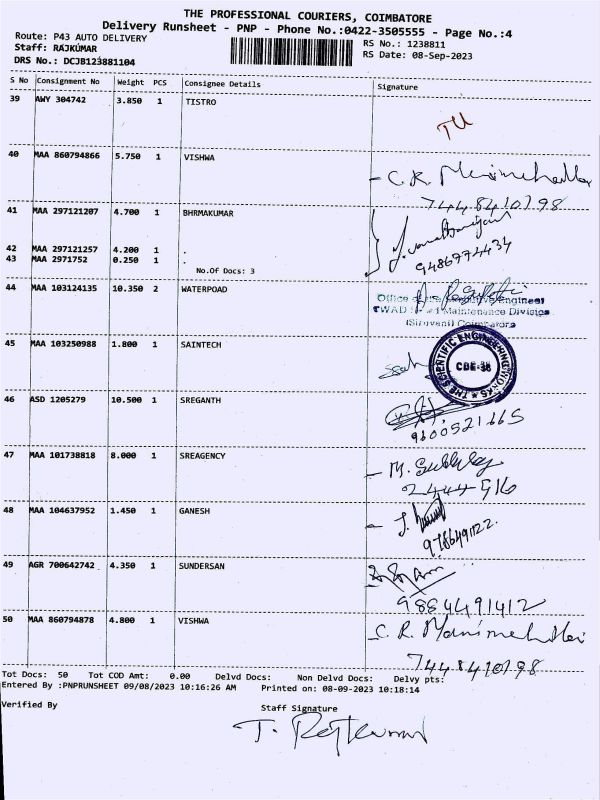 THE PROFESSIONAL COURIERS, COIMBATORE
Delivery Runsheet - PNP - Phone No.:0422-3505555 - Page No.:4
Route: P43 AUTO DELIVERY
Staff: RAJKUMAR
DRS No.: DCJB123881104
RS No.: 1238811
RS Date: 08-Sep-2023
S No Consignment No Weight PCS Consignee Details Signature
39 AWY 304742 3.850 1 TISTRO
40 MAA 860794866 5.750 1 VISHWA
7448410798
41 MAA 297121207 4.700 1 BHRMAKUMAR
42 MAA 297121257 4.200 1
43 MAA 2971752 0.250 1 .
9486972434
No.Of Docs: 3
44 MAA 103124135 10.350 2 WATERPOAD
Office of the Executive Engineer
TWAD Maintenance Division
(Siruvani) Coimbatore
45 MAA 103250988 1.800 1 SAINTECH
THE SCIENTIFIC ENGINEERING WORKS
CBE-38
46 ASD 1205279 10.500 1 SREGANTH
9600521665
47 MAA 101738818 8.000 1 SREAGENCY
2444916
48 MAA 104637952 1.450 1 GANESH
49 AGR 700642742 4.350 1 SUNDERSAN
9884491412
50 MAA 860794878 4.800 1 VISHWA
7448410798
Tot Docs: 50 Tot COD Amt: 0.00 Delvd Docs: Non Delvd Docs: Delvy pts:
Entered By :PNPRUNSHEET 09/08/2023 10:16:26 AM Printed on: 08-09-2023 10:18:14
Verified By Staff Signature